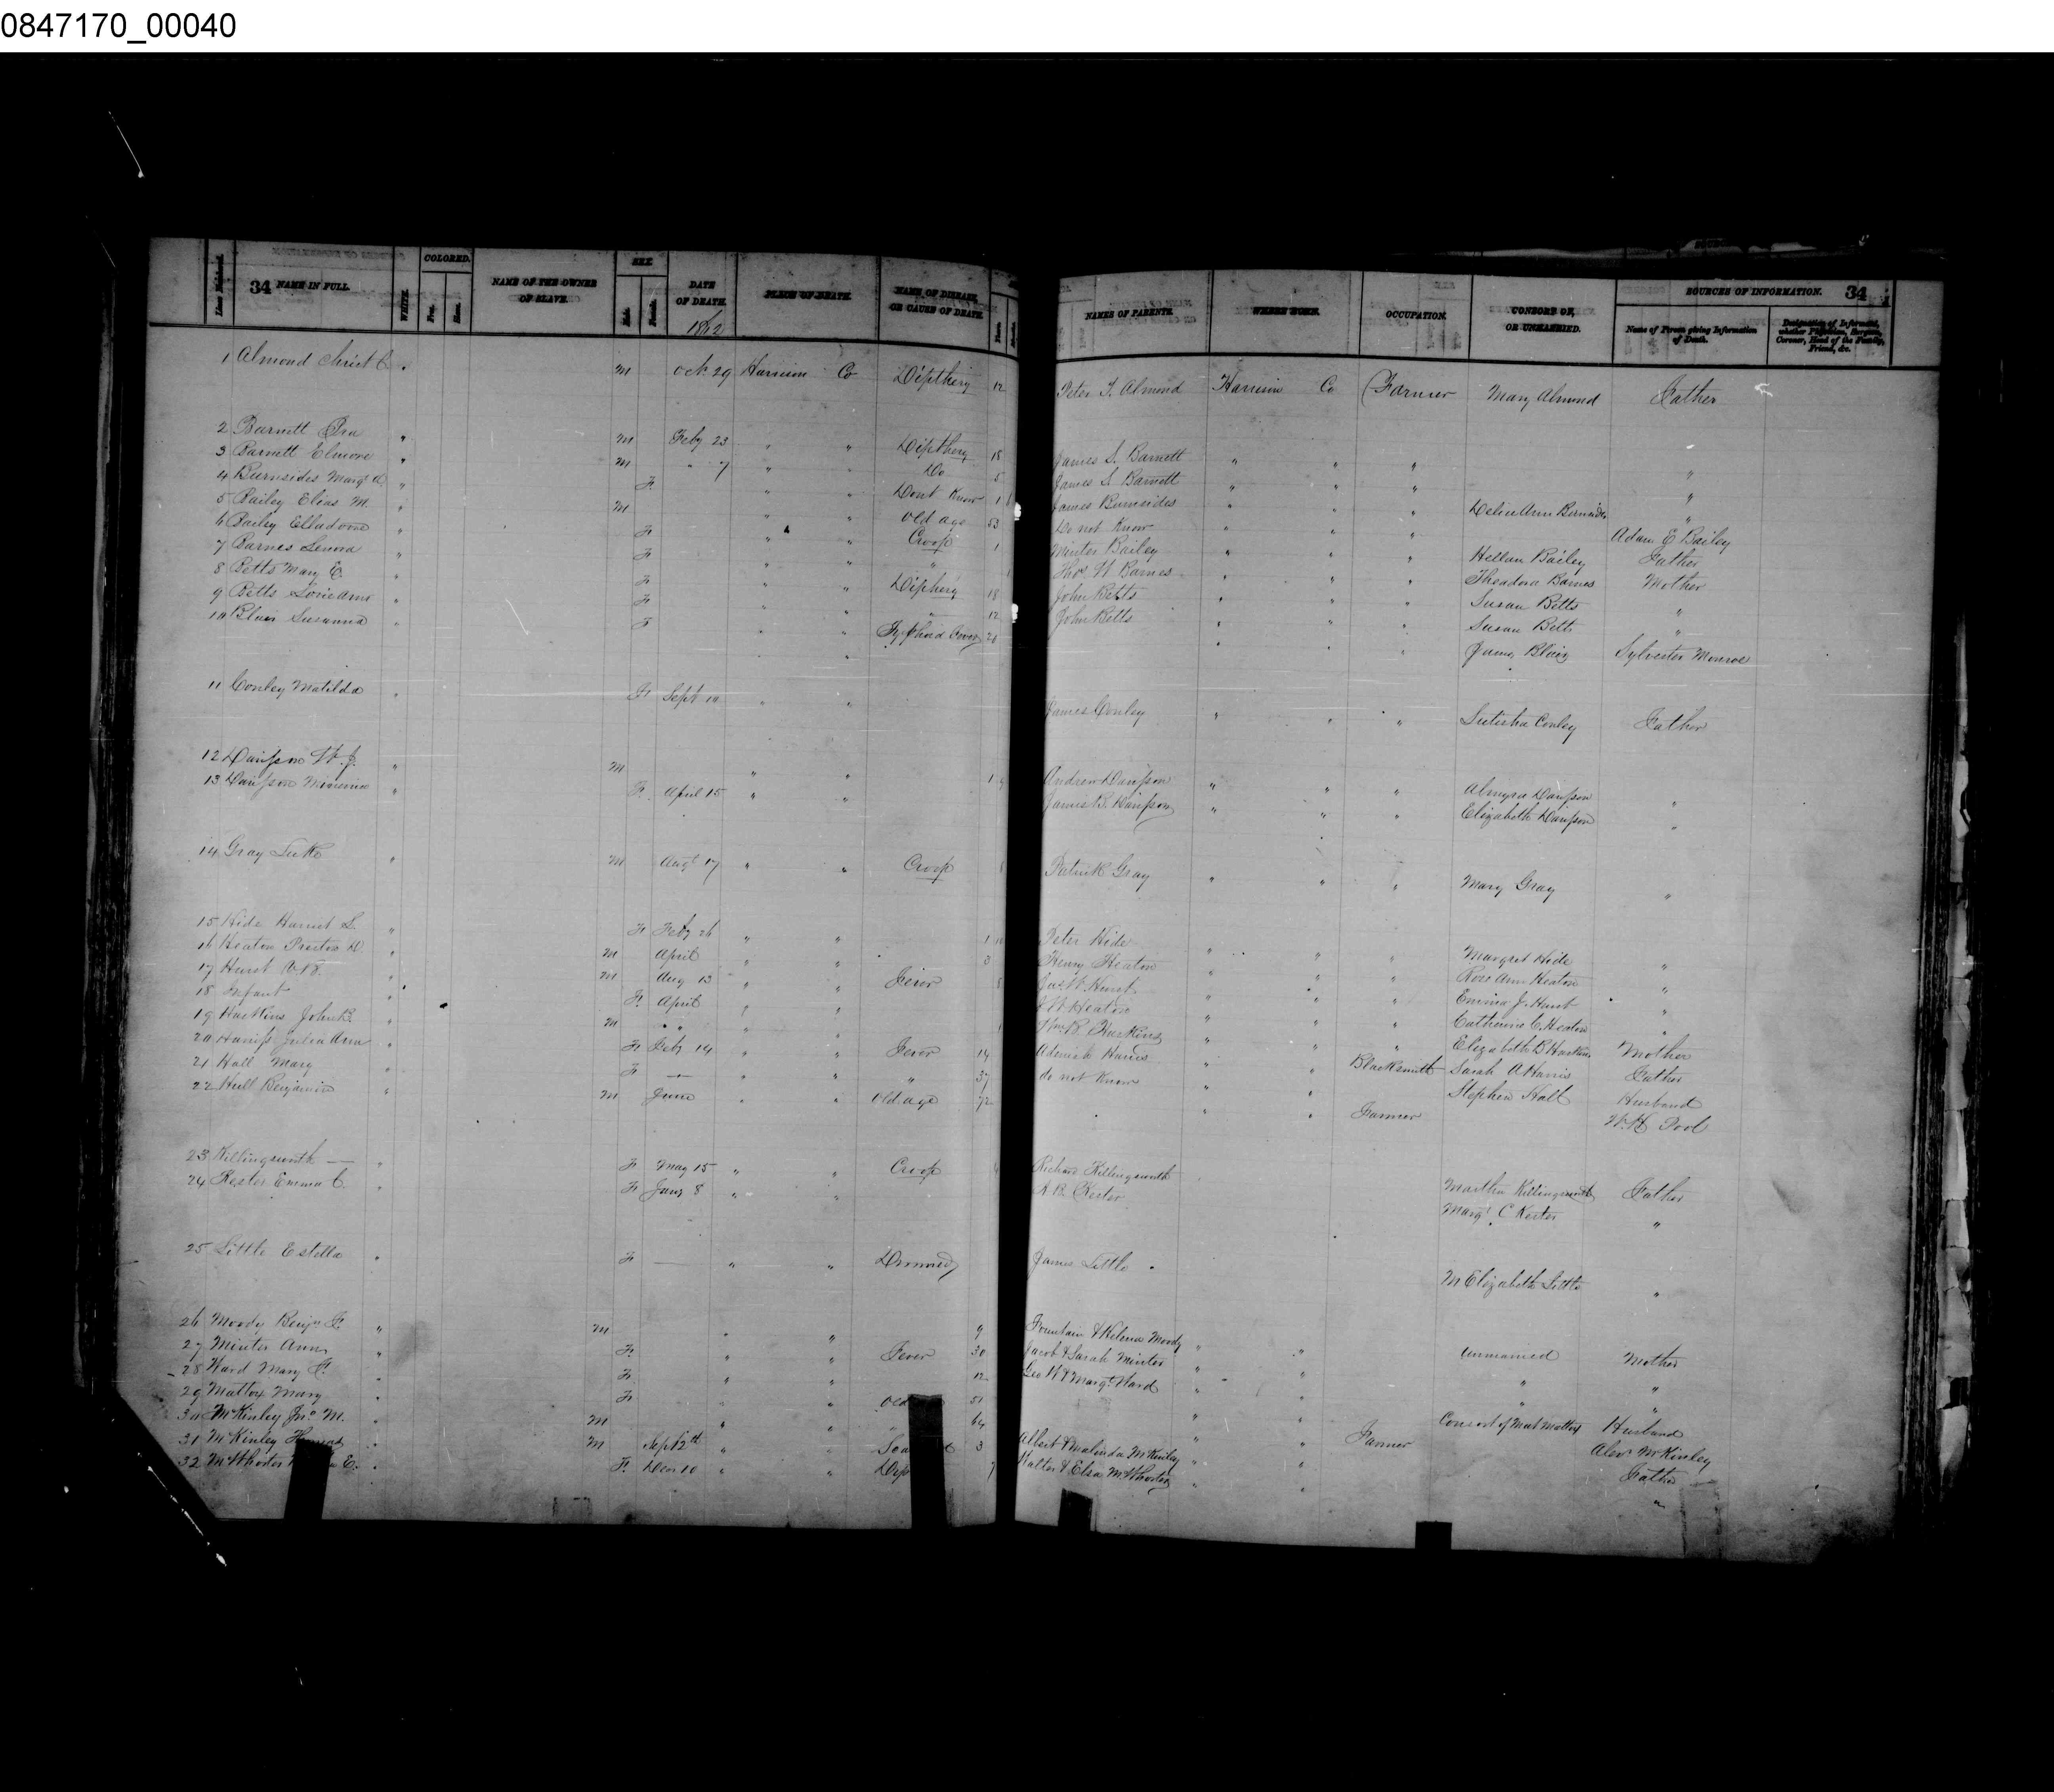 0847170_00040
34 NAME IN FULL. WHITE. COLORED. Free. Slave. NAME OF THE OWNER OF SLAVE. SEX Male. Female. DATE OF DEATH. PLACE OF DEATH. NAME OF DISEASE, OR CAUSE OF DEATH. NAMES OF PARENTS. WHERE BORN. OCCUPATION. CONSORT OF, OR UNMARRIED. SOURCES OF INFORMATION. 34
Name of Person giving Information of Death. Designation of Informant, whether Physician, Surgeon, Coroner, Head of the Family, Friend, &c.
1862
1 Almond Christ C " M Oct. 29 Harrison Co Dipthery 12 Peter T. Almond Harrison Co Farmer Mary Almond Father
2 Barnett Ira " M Feby 23 " " Dipthery 18 James S. Barnett " " " "
3 Barnett Elmore " M " 7 " " Do 5 James S. Barnett " " " "
4 Burnsides Margt A. " F " " Dont Know 1 James Burnsides " " " Delia Ann Burnsides "
5 Bailey Elias M. " M " " Old age 53 Do not Know " " " Adam E Bailey
6 Bailey " F " " Croop 1 Minter Bailey " " " Hellen Bailey Father
7 Barnes Lenora " F " " " Thos W Barnes " " " Theadora Barnes Mother
8 Betts Mary E. " F " " Dipthery 18 John Betts " " " Susan Betts "
9 Betts Ann " F " " " 12 John Betts " " " Susan Betts "
10 Blair Susanna " F " " Typhoid Fever 20 " " " James Blair Sylvester Monroe
11 Conley Matilda " F Sept 10 " " James Conley " " " Conley Father
12 Davisson W. J. " M " " 1 Andrew Davisson " " " Almyra Davisson "
13 Davisson " F April 15 " " James B. Davisson " " " Elizabeth Davisson "
14 Gray Luke " M Augt 17 " " Croop Patrick Gray " " " Mary Gray "
15 Hide Harriet L. " F Feby 26 " " 1 10 Peter Hide " " " Margret Hide "
16 Heaton Preston D. " M April " " 3 Henry Heaton " " " Rose Ann Heaton "
17 Hurst " M Aug 13 " " Fever 8 Jas. W. Hurst " " " Emma J. Hurst "
18 Infant " F April " " J W. Heaton " " " Catherine C. Heaton "
19 Haskins John B. " M " " " " Wm B Haskins " " " Elizabeth B Haskins Mother
20 Harriss Julia Ann " F Feby 14 " " Fever 14 Harris " " Blacksmith Sarah A Harris Father
21 Hall Mary " F — " " " 37 do not Know " " Stephen Hall Husband
22 Hull Benjamin " M June " " Old age 72 " " Farmer W. H Pool
23 Killingsworth — " F May 15 " " Croop Richard Killingsworth Martha Killingsworth Father
24 Kester Emma C. " F Jany 8 " " A. B. Kester Margt C Kester "
25 Little Estella " F — " " Drowned James Little M Elizabeth Little "
26 Moody Benjn F. " M " " 9 Fountain & Helena Moody " " Unmarried Mother
27 Minter Ann " F " " Fever 30 Jacob & Sarah Minter " " " "
28 Ward Mary F. " F " " 12 Geo W & Margt Ward " " "
29 Mattox Mary " F " " Old 51 " " Consort of Mattox Husband
30 McKinley Jno M. " M " " 64 " " Farmer Alexr McKinley
31 McKinley Thomas " M Sept 12th " " 3 Albert & Malinda McKinley " " Father
32 McWhorter E. " F Dec 10 " " Dip 7 Walter & Elsa McWhorter " " "